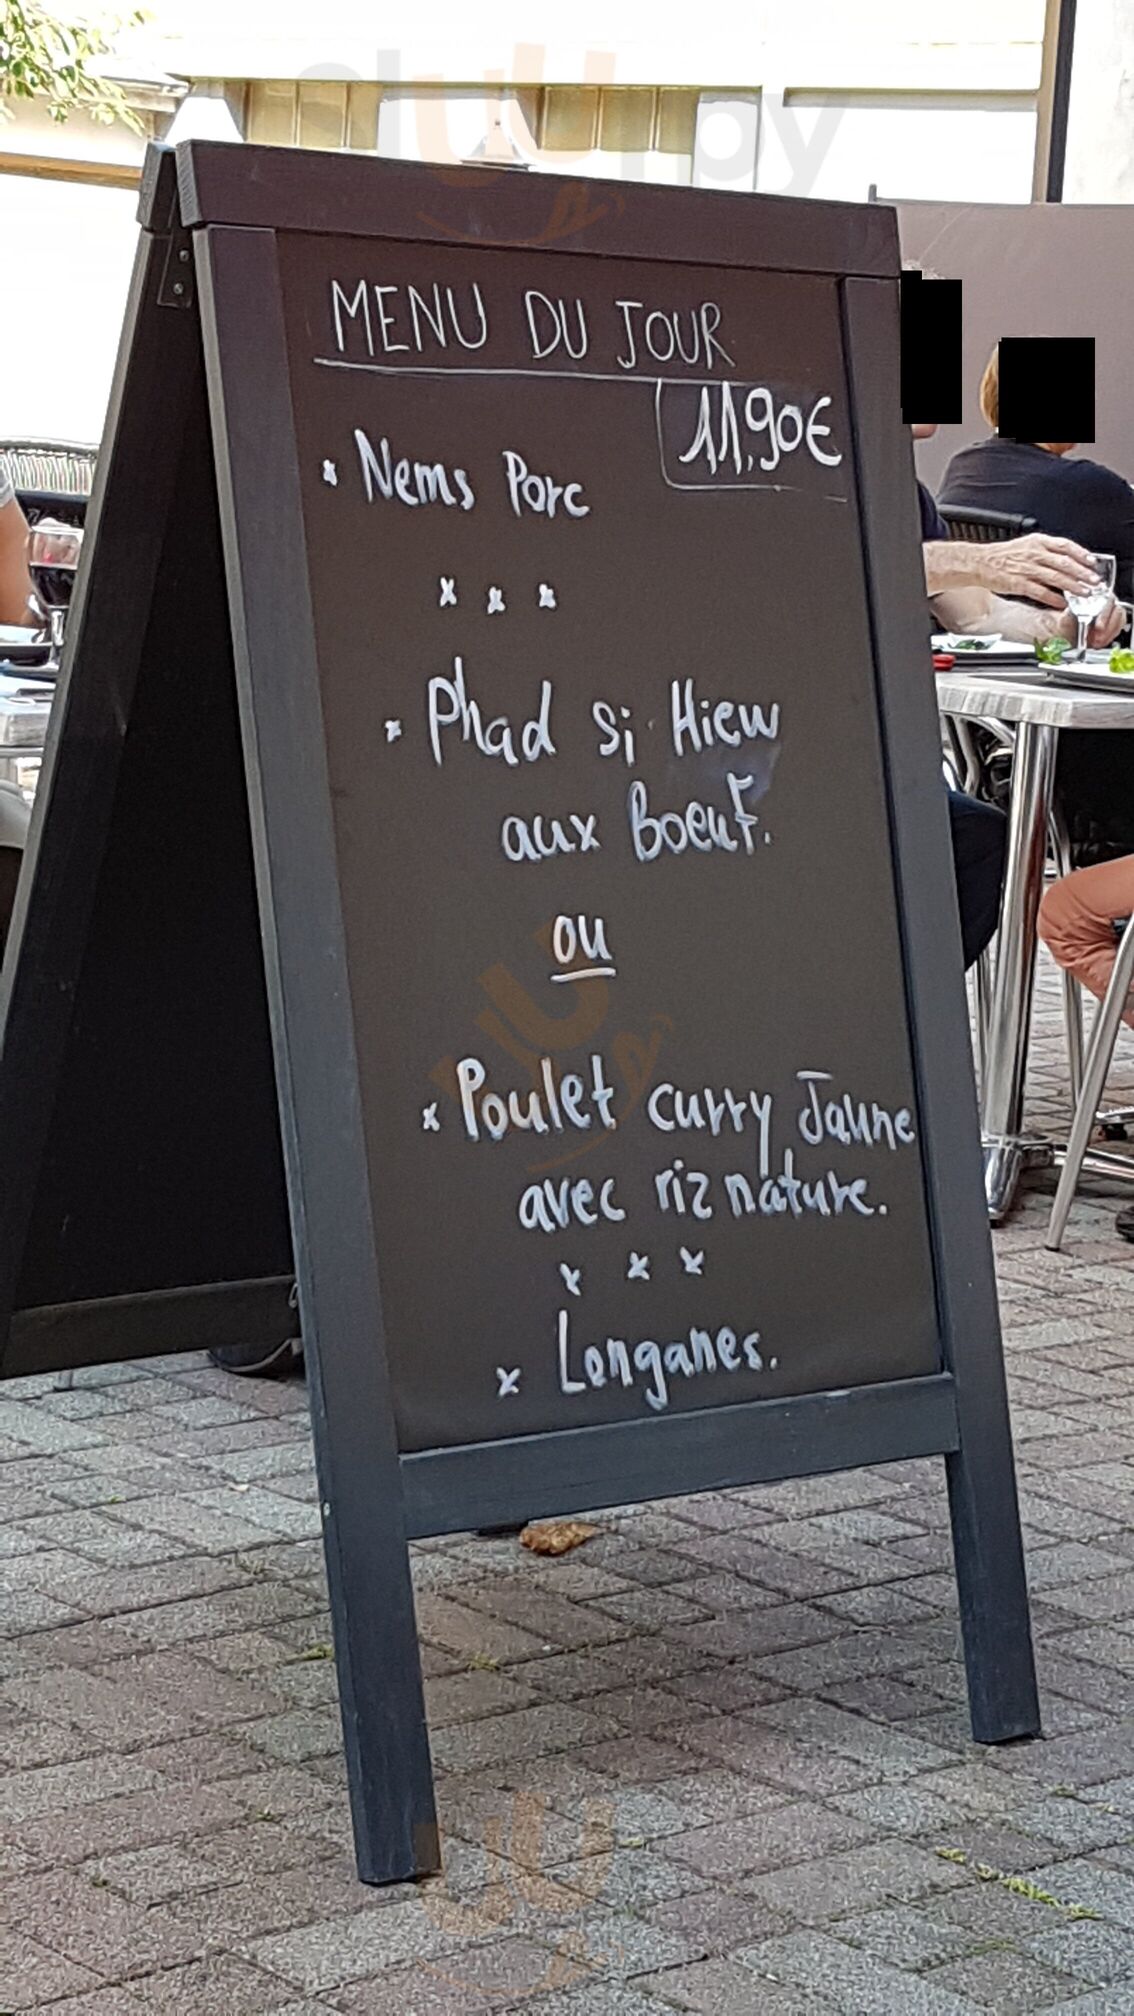 sluurpy
MENU DU JOUR
11,90€
x Nems Porc
x x x
x Phad si Hiew
aux Boeuf.
ou
x Poulet curry Jaune
avec riz nature.
x x x
x Longanes.